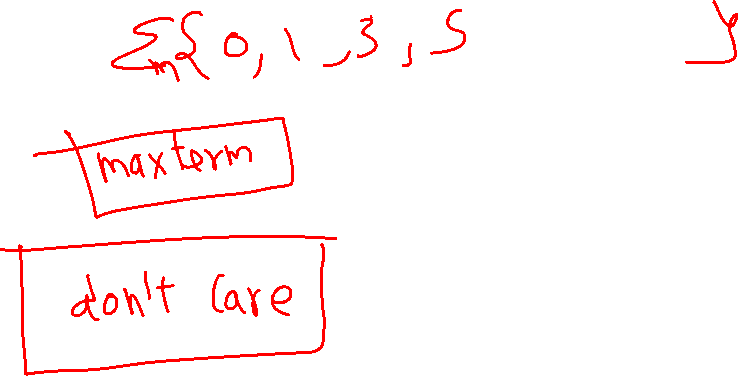 Σm{ 0, 1, 3, 5 }
maxterm
don't care